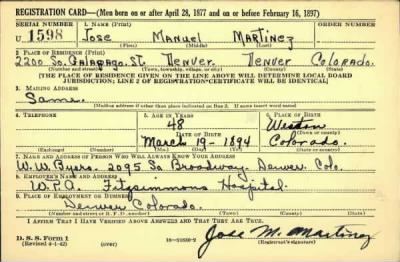 REGISTRATION CARD—(Men born on or after April 28, 1877 and on or before February 16, 1897)
SERIAL NUMBER 1. NAME (Print)
U 1598 Jose Manuel Martinez
(First) (Middle) (Last)
2. PLACE OF RESIDENCE (Print)
2200 So. Galapago St. Denver. Denver Colorado.
(Number and street) (Town, township, village, or city) (County) (State)
[THE PLACE OF RESIDENCE GIVEN ON THE LINE ABOVE WILL DETERMINE LOCAL BOARD
JURISDICTION; LINE 2 OF REGISTRATION CERTIFICATE WILL BE IDENTICAL]
3. MAILING ADDRESS
Same
[Mailing address if other than place indicated on line 2. If same insert word same]
4. TELEPHONE 5. AGE IN YEARS 6. PLACE OF BIRTH
48 Weston
DATE OF BIRTH (Town or county)
March 19- 1894 Colorado.
(Exchange) (Number) (Mo.) (Day) (Yr.) (State or country)
7. NAME AND ADDRESS OF PERSON WHO WILL ALWAYS KNOW YOUR ADDRESS
W. W. Byers. 2095 So Broadway. Denver. Colo.
8. EMPLOYER'S NAME AND ADDRESS
W.P.A. Fitzsimmons Hospital.
9. PLACE OF EMPLOYMENT OR BUSINESS
Denver Colorado.
(Number and street or R. F. D. number) (Town) (County) (State)
I AFFIRM THAT I HAVE VERIFIED ABOVE ANSWERS AND THAT THEY ARE TRUE.
D. S. S. Form 1
(Revised 4-1-42) (over) Jose M. Martinez
(Registrant's signature)